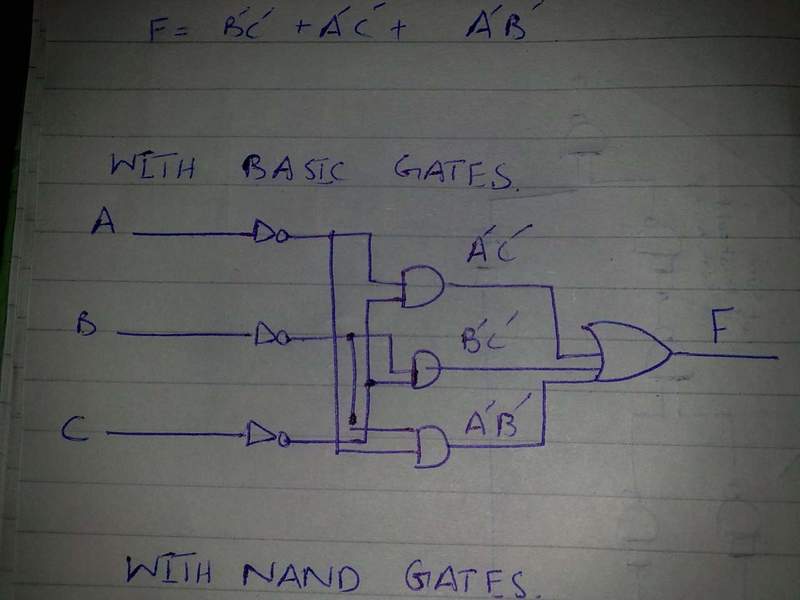 F = B'C' + A'C' + A'B'
WITH BASIC GATES.
A
A'C'
B
B'C'
F
C
A'B'
WITH NAND GATES.